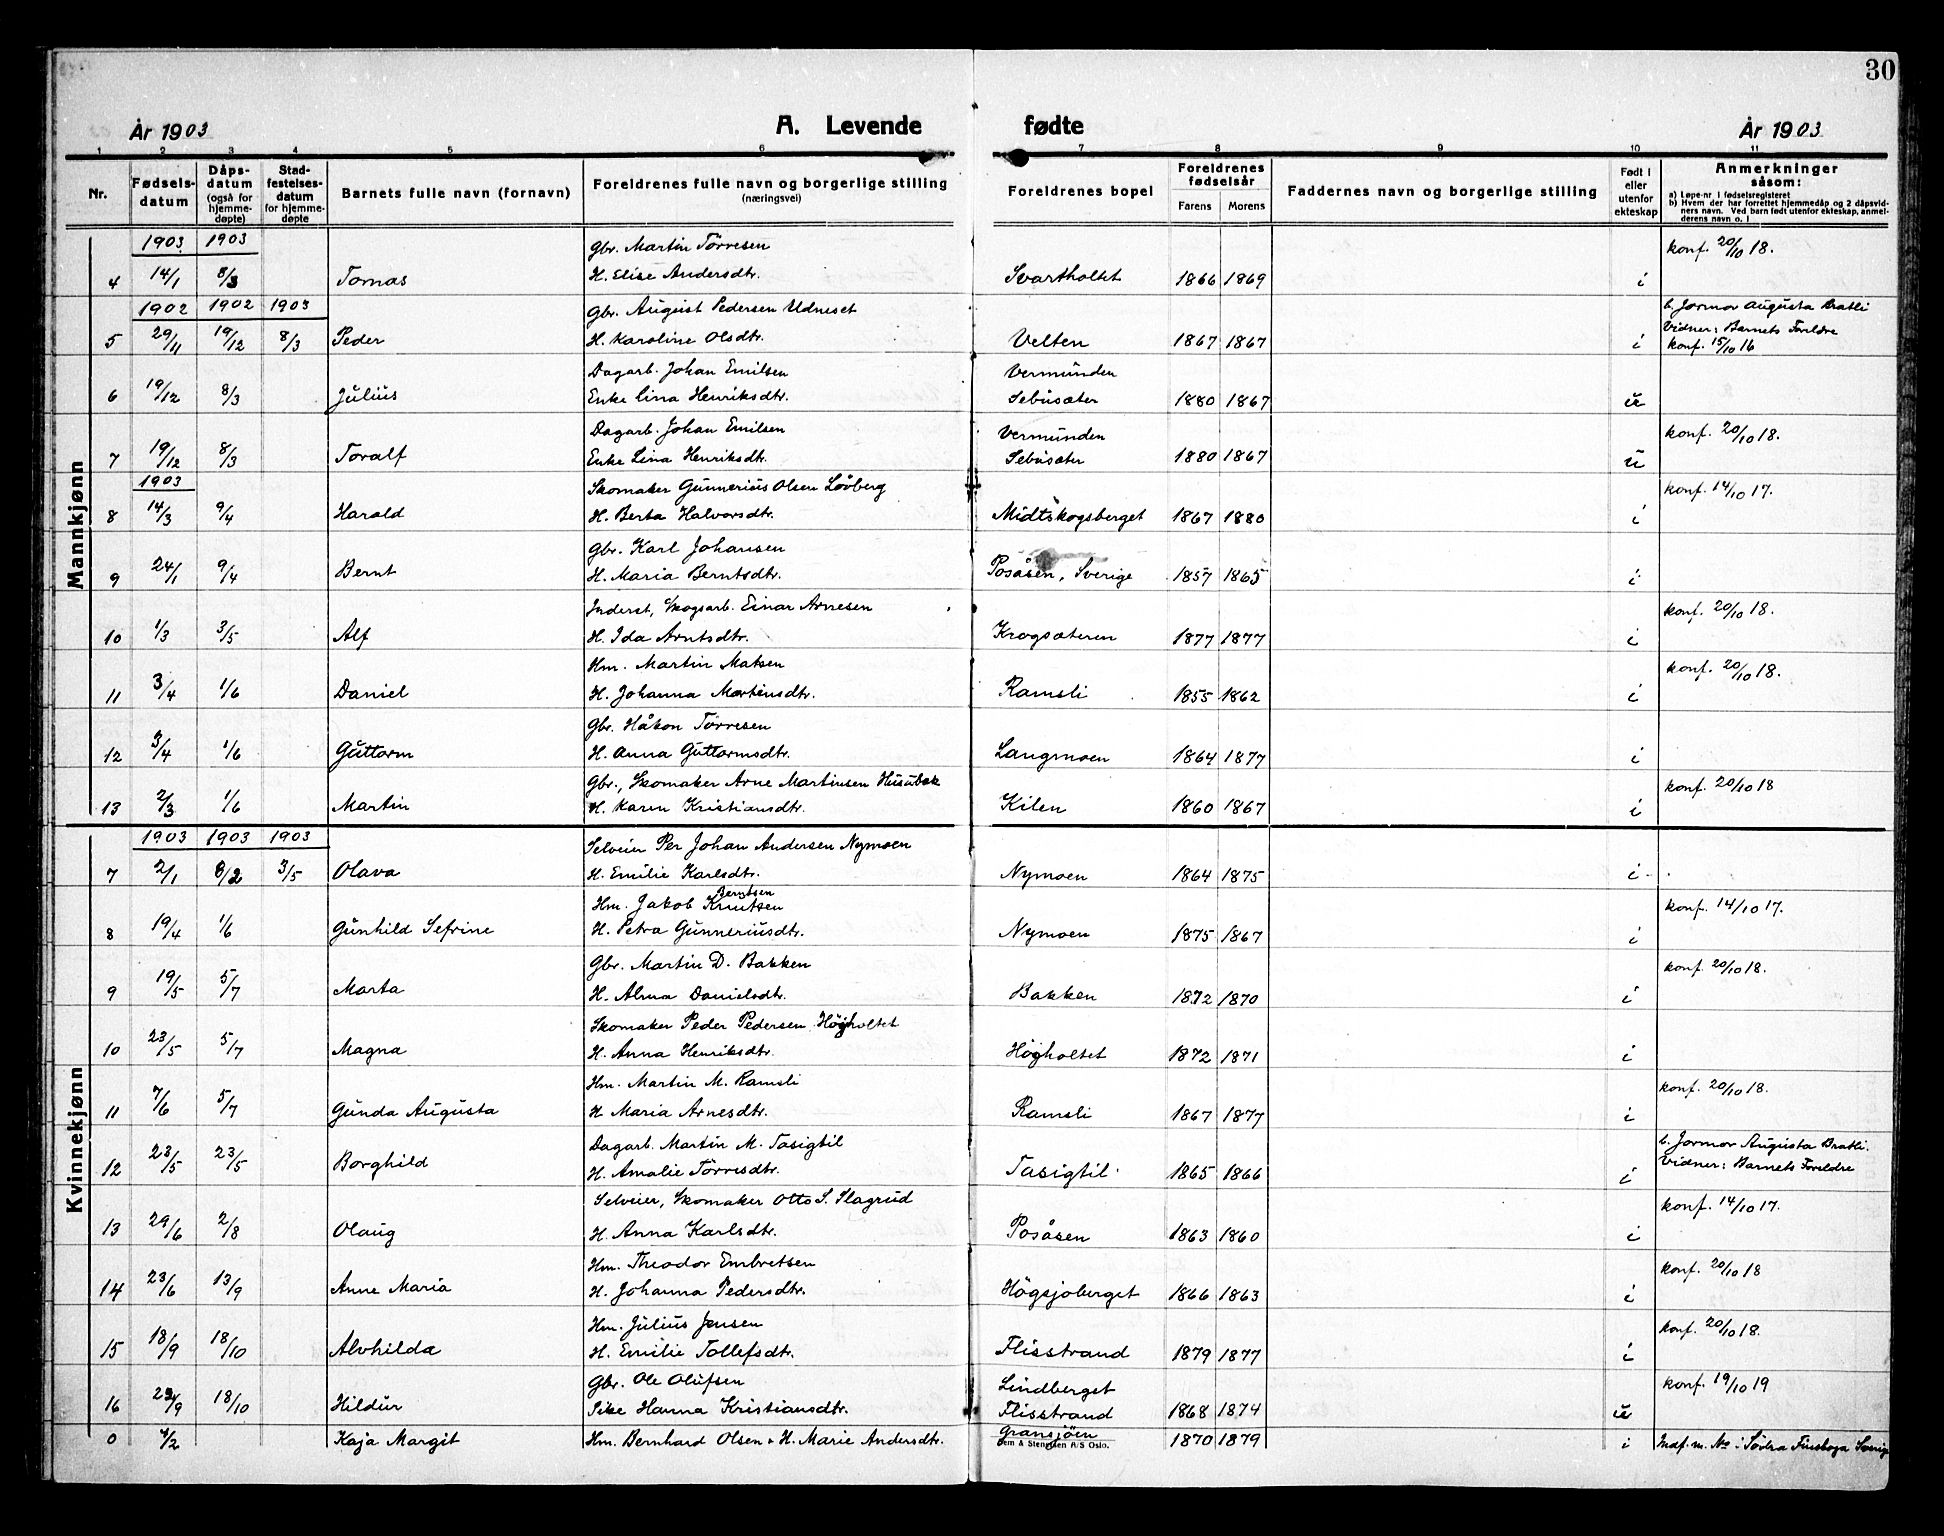 30
År 1903 A. Levende fødte År 1903
1 2 3 4 5 6 7 8 9 10 11
Nr. Fødselsdatum Dåpsdatum (også for hjemmedøpte) Stadfestelsesdatum for hjemmedøpte Barnets fulle navn (fornavn) Foreldrenes fulle navn og borgerlige stilling (næringsvei) Foreldrenes bopel Foreldrenes fødselsår Farens Morens Faddernes navn og borgerlige stilling Født i eller utenfor ekteskap Anmerkninger såsom: a) Løpe-nr. i fødselsregisteret b) Hvem der har forrettet hjemmedåp og 2 dåpsvidners navn. Ved barn født utenfor ekteskap, anmelderens navn o. l
Mannkjønn
1903 1903 Gbr. Martin Törresen konf. 20/10 18.
4 14/1 8/3 Tomas H. Elise Andersdtr. Svartholtet 1866 1869 i
1902 1902 1903 Gbr. August Pedersen Udneset b. Jormor Augusta Bratli
Vidner: Barnets Foreldre
5 29/11 19/12 8/3 Peder H. Karoline Olsdtr. Velten 1867 1867 i konf. 15/10 16
Dagarb. Johan Emilsen Vermunden
6 19/12 8/3 Julius Enke Lina Henriksdtr. Sebusæter 1880 1867 u
Dagarb. Johan Emilsen Vermunden konf. 20/10 18.
7 19/12 8/3 Toralf Enke Lina Henriksdtr. Sebusæter 1880 1867 u
1903 Skomaker Gunnerius Olsen Lövberg konf. 14/10 17.
8 14/3 9/4 Harald H. Berta Halvorsdtr. Midtskogsberget 1867 1880 i
Gbr. Karl Johansen
9 24/1 9/4 Bernt H. Maria Berntsdtr. Posåsen, Sverige 1857 1865 i
Inderst, Skogsarb. Einar Arnesen konf. 20/10 18.
10 1/3 3/5 Alf H. Ida Arntsdtr. Krogsæteren 1877 1877 i
Hm. Martin Matsen konf. 20/10 18.
11 3/4 1/6 Daniel H. Johanna Martinsdtr. Ramsli 1855 1862 i
Gbr. Håkon Törresen
12 3/4 1/6 Guttorm H. Anna Guttormsdtr. Langmoen 1864 1877 i
Gbr., Skomaker Arne Martinsen Husubak konf. 20/10 18
13 2/3 1/6 Martin H. Karen Kristiansdtr. Kilen 1860 1867 i
Kvinnekjønn
1903 1903 1903 Selveier Per Johan Andersen Nymoen
7 2/1 8/2 3/5 Olava H. Emilie Karlsdtr. Nymoen 1864 1875 i
Berntsen
Hm. Jakob Knutsen konf. 14/10 17.
8 19/4 1/6 Gunhild Sefrine H. Petra Gunneriusdtr. Nymoen 1875 1867 i
Gbr. Martin D. Bakken konf. 20/10 18.
9 19/5 5/7 Marta H. Alma Danielsdtr. Bakken 1872 1870 i
Skomaker Peder Pedersen Högholtet
10 23/5 5/7 Magna H. Anna Henriksdtr. Högholtet 1872 1871 i
Hm. Martin M. Ramsli konf. 20/10 18.
11 7/6 5/7 Gunda Augusta H Maria Arnesdtr. Ramsli 1867 1877 i
Dagarb. Martin M. Tasigtil b. Jormor Augusta Bratli.
12 23/5 23/5 Borghild H. Amalie Törresdtr. Tasigtil 1865 1866 i Vidner: Barnets Foreldre
Selveier, Skomaker Otto S. Slagrud konf. 14/10 17.
13 29/6 2/8 Olaug H. Anna Karlsdtr. Posåsen 1863 1860 i
Hm. Theodor Embretsen konf. 20/10 18
14 23/6 13/9 Anne Maria H. Johanna Pedersdtr. Högsjoberget 1866 1863 i
Hm. Julius Jensen konf. 20/10 18.
15 18/9 18/10 Alvhilda H. Emilie Tollefsdtr. Flisstrand 1879 1877 i
Gbr. Ole Olufsen Lindberget konf. 19/10 19
16 /9 18/10 Hildur Pike Hanna Kristiansdtr. Flisstrand 1868 1874 u
0 4/2 Kaja Margit Hm. Bernhard Olsen & H. Marie Andersdtr. Gransjöen 1870 1879 i Indf. m. No i Södra Finskoga Sverig
Sem & Stenersen A/S Oslo.